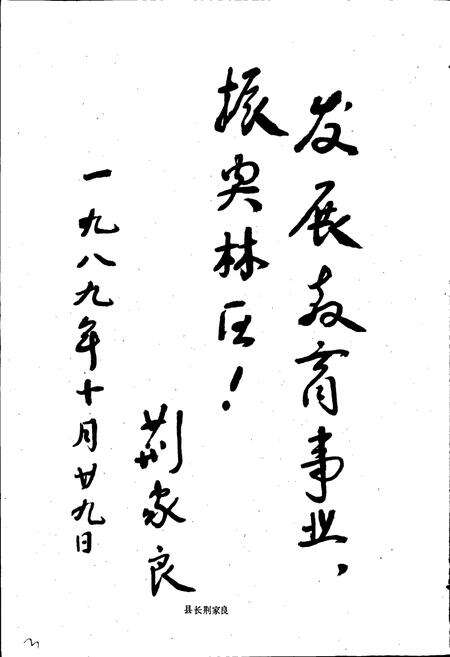 发展教育事业，
振興林区！
荆家良
一九八九年十月廿九日
县长荆家良